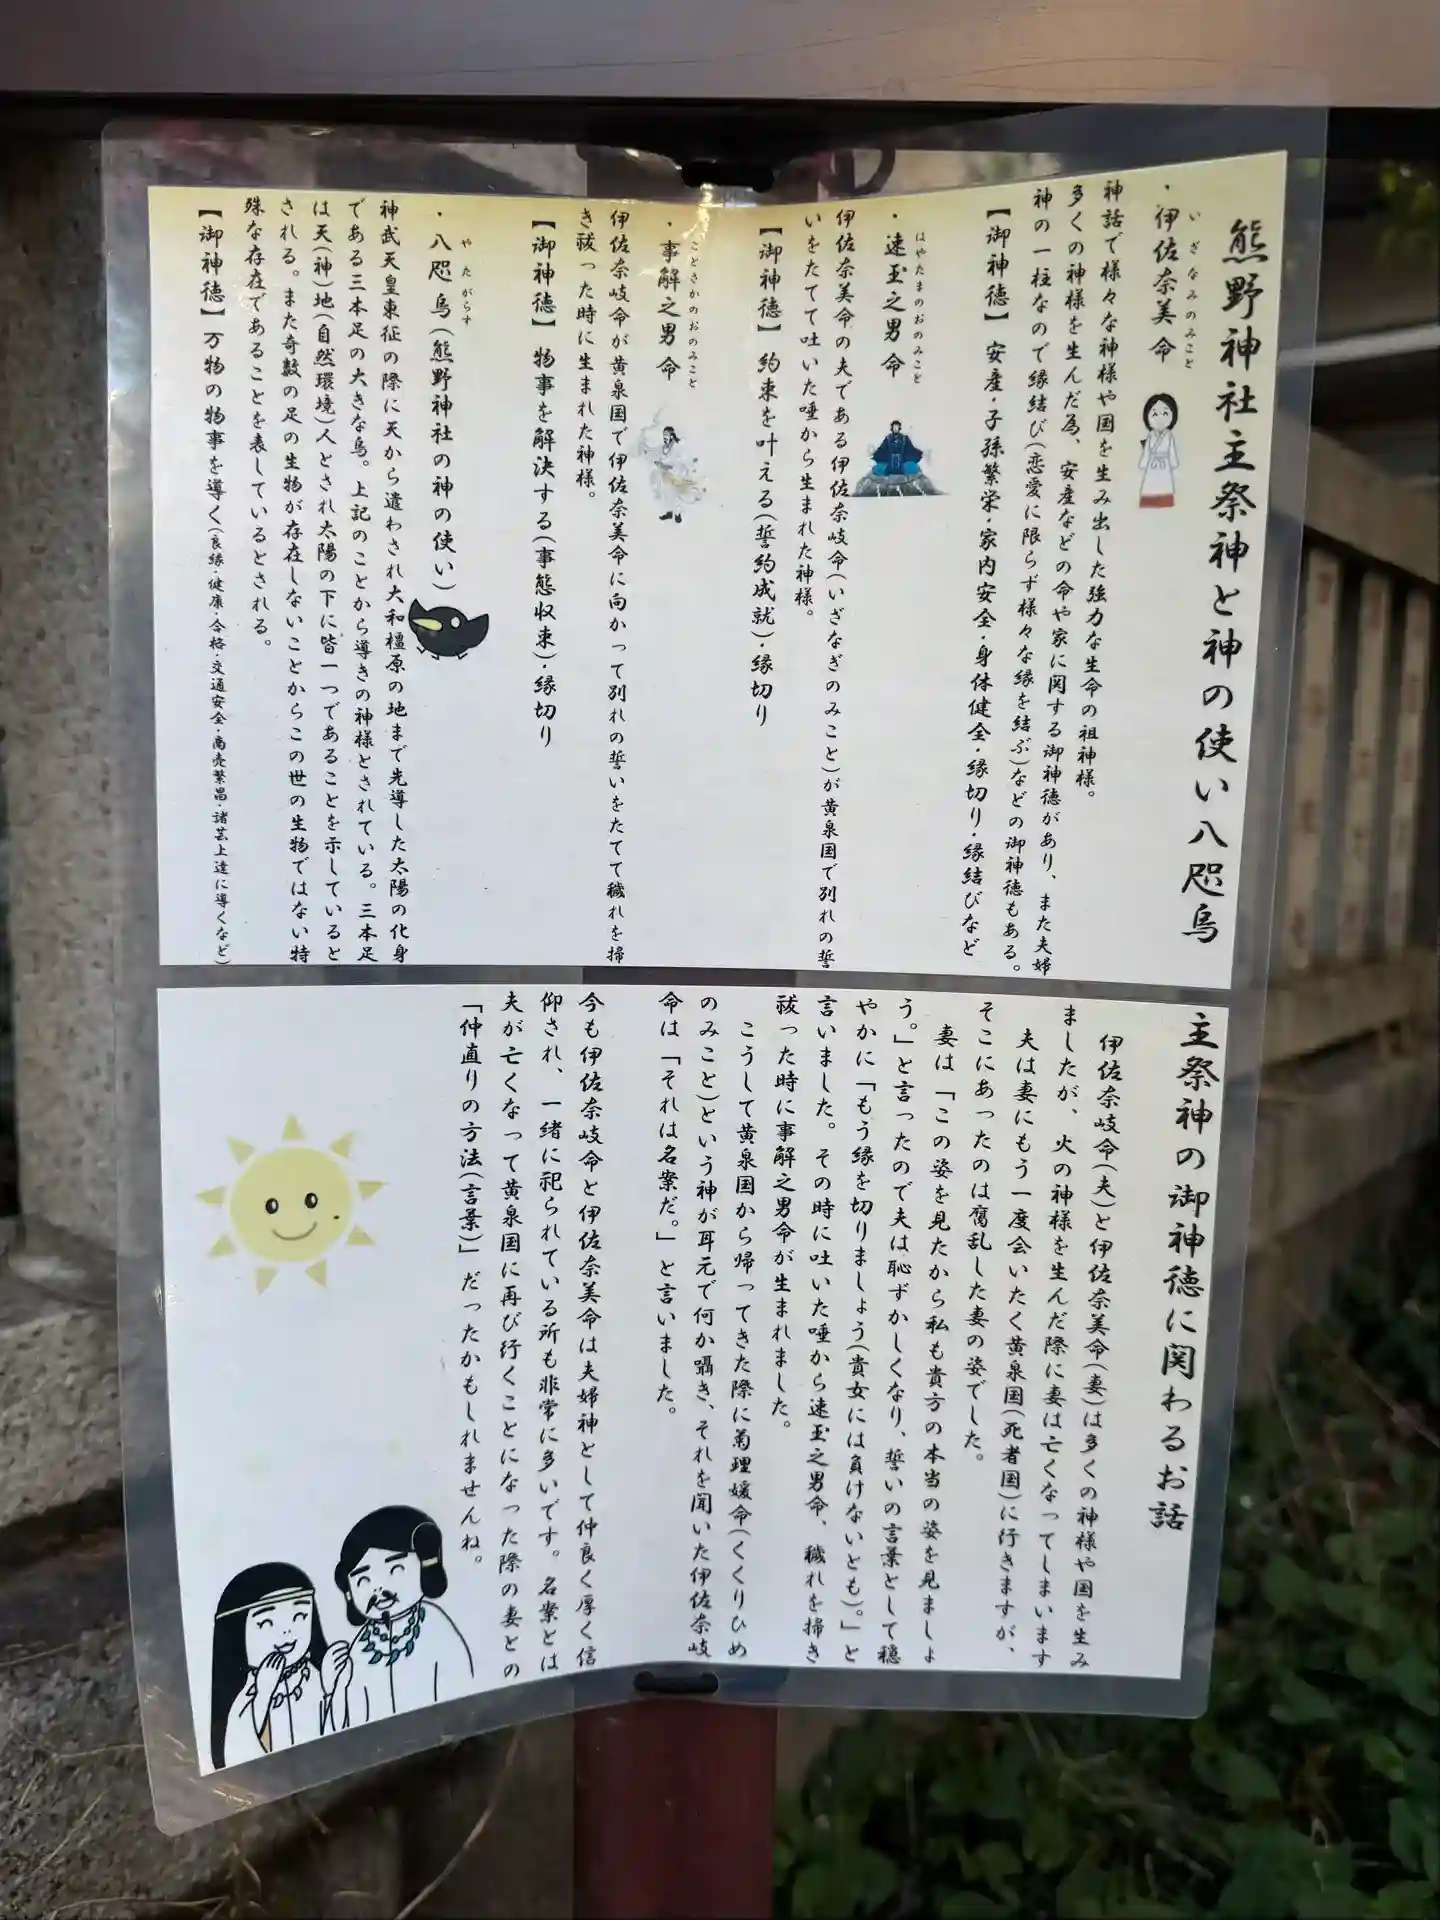 熊野神社主祭神と神の使い八咫烏
・伊佐奈美命
いざなみのみこと
神話で様々な神様や国を生み出した強力な生命の祖神様。
多くの神様を生んだ為、安産などの命や家に関する御神徳があり、また夫婦
神の一柱なので縁結び(恋愛に限らず様々な縁を結ぶ)などの御神徳もある。
【御神徳】安産・子孫繁栄・家内安全・身体健全・縁切り・縁結びなど
・速玉之男命
はやたまのおのみこと
伊佐奈美命の夫である伊佐奈岐命(いざなぎのみこと)が黄泉国で別れの誓
いをたてて吐いた唾から生まれた神様。
【御神徳】約束を叶える(誓約成就)・縁切り
・事解之男命
ことさかのおのみこと
伊佐奈岐命が黄泉国で伊佐奈美命に向かって別れの誓いをたてて穢れを掃
き祓った時に生まれた神様。
【御神徳】物事を解決する(事態収束)・縁切り
・八咫烏(熊野神社の神の使い)
やたがらす
神武天皇東征の際に天から遣わされ大和橿原の地まで先導した太陽の化身
である三本足の大きな烏。上記のことから導きの神様とされている。三本足
は天(神)地(自然環境)人とされ太陽の下に皆一つであることを示していると
される。また奇数の足の生物が存在しないことからこの世の生物ではない特
殊な存在であることを表しているとされる。
【御神徳】万物の物事を導く(良縁・健康・合格・交通安全・商売繁昌・諸芸上達に導くなど)
主祭神の御神徳に関わるお話
伊佐奈岐命(夫)と伊佐奈美命(妻)は多くの神様や国を生み
ましたが、火の神様を生んだ際に妻は亡くなってしまいます
夫は妻にもう一度会いたく黄泉国(死者国)に行きますが、
そこにあったのは腐乱した妻の姿でした。
妻は「この姿を見たから私も貴方の本当の姿を見ましょ
う。」と言ったので夫は恥ずかしくなり、誓いの言葉として穏
やかに「もう縁を切りましょう(貴女には負けないとも)。」と
言いました。その時に吐いた唾から速玉之男命、穢れを掃き
祓った時に事解之男命が生まれました。
こうして黄泉国から帰ってきた際に菊理媛命(くくりひめ
のみこと)という神が耳元で何か囁き、それを聞いた伊佐奈岐
命は「それは名案だ。」と言いました。
今も伊佐奈岐命と伊佐奈美命は夫婦神として仲良く厚く信
仰され、一緒に祀られている所も非常に多いです。名案とは
夫が亡くなって黄泉国に再び行くことになった際の妻との
「仲直りの方法(言葉)」だったかもしれませんね。